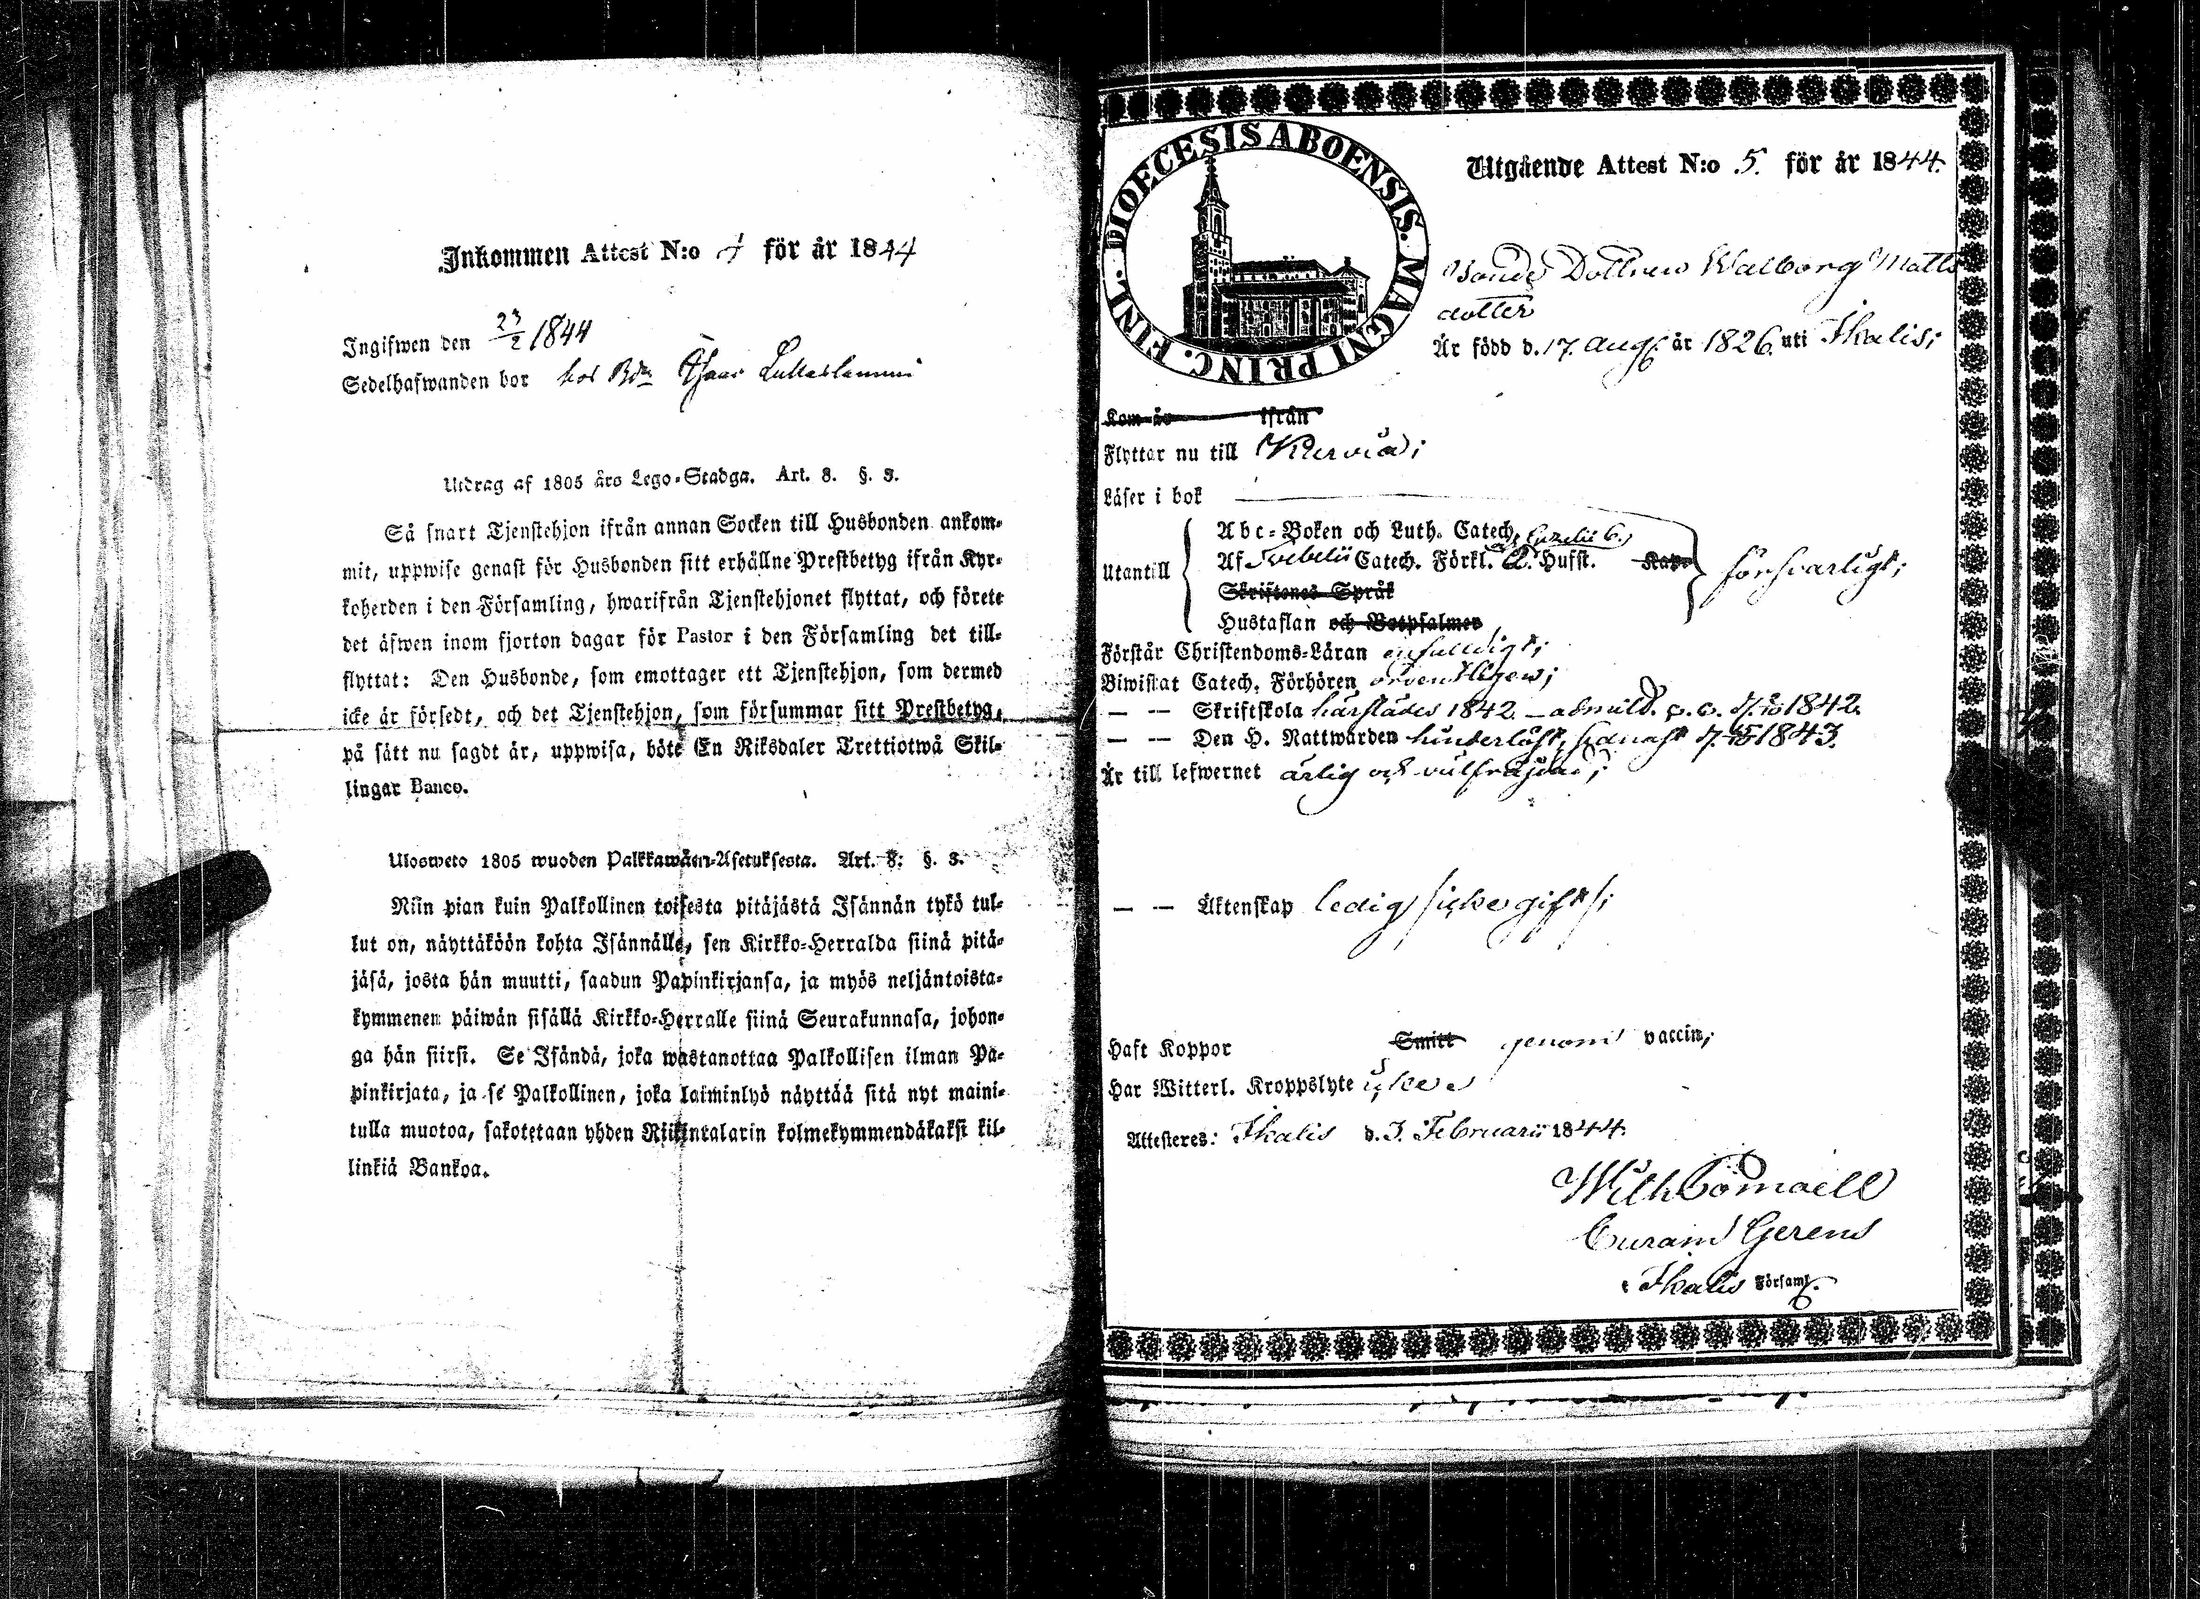 Inkommen Attest N:o 4 för år 1844
Ingifwen den 23/2 1844
Sedelhafwanden bor hos Bdn
Utdrag af 1805 års Lego-Stadga. Art. 8. §. 3.
Så snart Tjenstehjon ifrån annan Socken till Husbonden ankom-
mit, uppwise genast för Husbonden sitt erhållne Prestbetyg ifrån Kyr-
koherden i den Församling, hwarifrån Tjenstehjonet flyttat, och förete
det äfwen inom fjorton dagar för Pastor i den Församling det till-
flyttat: Den Husbonde, som emottager ett Tjenstehjon, som dermed
icke är försedt, och det Tjenstehjon, som försummar sitt Prestbetyg,
på sätt nu sagdt är, uppwisa, böte En Riksdaler Trettiotwå Skil-
lingar Banco.
Ulosweto 1805 wuoden Palkkawäen-Asetuksesta. Art. 8. §. 3.
Niin pian kuin Palkollinen toisesta pitäjästä Isännän tykö tul-
lut on, näyttäköön kohta Isännälle, sen Kirkko-Herralda siinä pitä-
jäsä, josta hän muutti, saadun Papinkirjansa, ja myös neljäntoista-
kymmenen päiwän sisällä Kirkko-Herralle siinä Seurakunnasa, johon-
ga hän siirsi. Se Isändä, joka wastanottaa Palkollisen ilman Pa-
pinkirjata, ja se Palkollinen, joka laiminlyö näyttää sitä nyt maini-
tulla muotoa, sakotetaan yhden Riikintalarin kolmekymmendäkaksi kil-
linkiä Bankoa.
DIOECESIS ABOENSIS. MAGNI PRINC. FINL.
Utgående Attest N:o 5. för år 1844.
Bonde Dottren Walborg Matts
dotter
Är född d. 17. Aug. år 1826. uti Ikalis;
Kom år ifrån
Flyttar nu till Kiervia;
Läser i bok
Utantill
Abc-Boken och Luth. Catech.
Af Svebelii Catech. Förkl. 2. Hufst. Kap.
Skriftenes Språk
Hustaflan och Botpsalmer
försvarligt;
Förstår Christendoms-Läran enfaldigt;
Biwistat Catech. Förhören ordentligen;
— — Skriftskola härstädes 1842. admitt. 1842.
— — Den H. Nattwarden hinderlöst, senast 1843.
Är till lefwernet ärlig och välfräjdad;
— — Äktenskap ledig /icke gift/;
Haft Koppor Smitt genom vaccin;
Har Witterl. Kroppslyte icke
Attesteres: Ikalis d. 3. Februarii 1844.
Wilh
Curam Gerens
i Ikalis Församl.